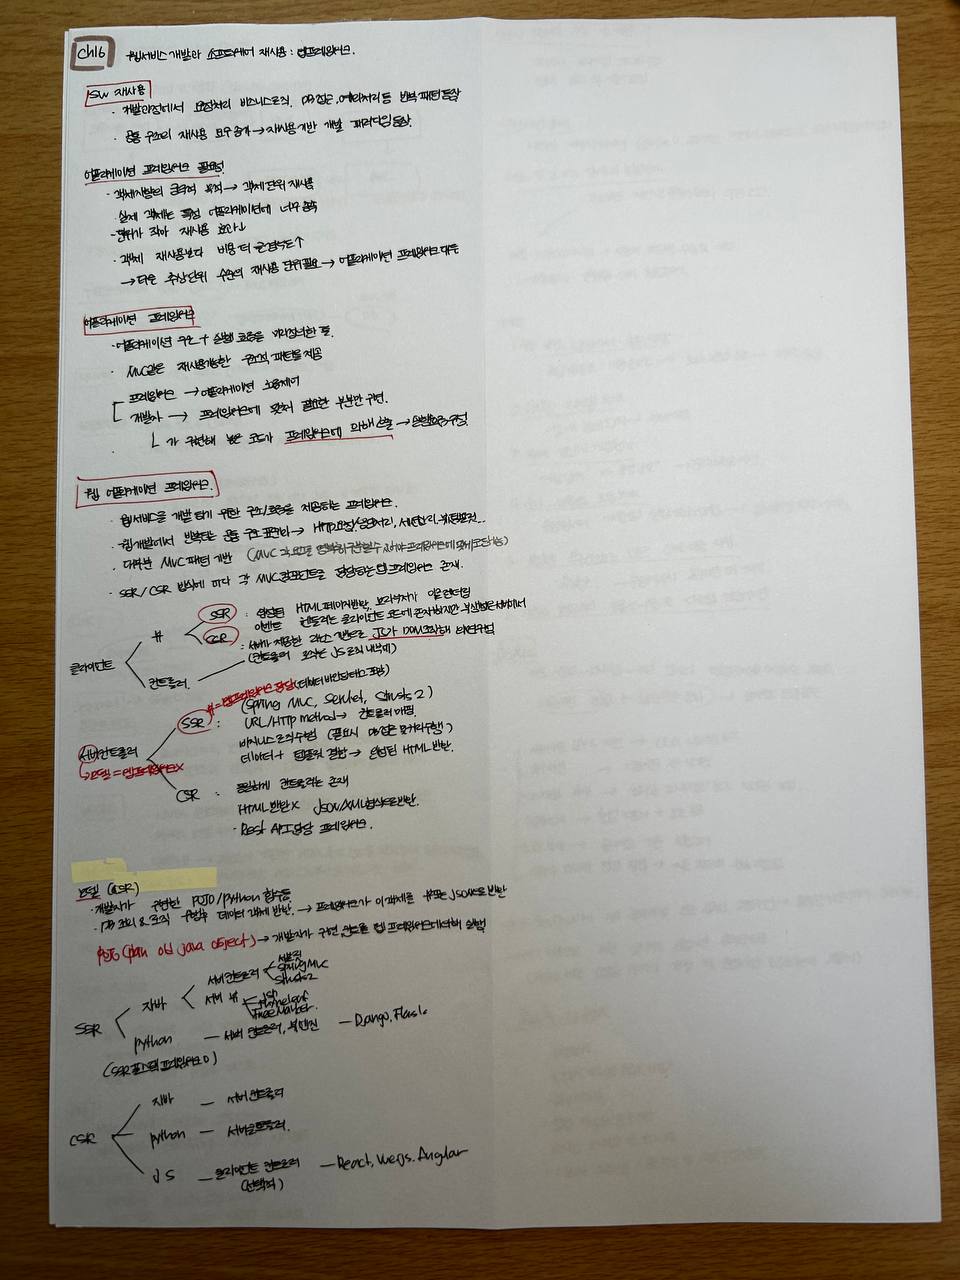 Ch16 웹서비스 개발과 소프트웨어 재사용 : 웹프레임워크.
SW 재사용
· 개발과정에서 요청처리 비즈니스로직, DB접근, 에러처리 등 반복 패턴 등장
· 공통 구조의 재사용 요구 증가 → 재사용기반 개발 패러다임 등장.
어플리케이션 프레임워크 필요성
· 객체지향의 궁극적 목적 → 객체 단위 재사용
· 실제 객체는 특정 어플리케이션에 너무 종속
- 단위가 작아 재사용 효과↓
· 객체 재사용보다 비용 더
→ 더 큰 추상단위 수준의 재사용 단위 필요 → 어플리케이션 프레임워크 대두
어플리케이션 프레임워크
· 어플리케이션 구조 + 실행 흐름을 미리 정의한 틀.
· MVC같은 재사용가능한 구조적 패턴을 제공
프레임워크 → 어플리케이션 흐름제어
개발자 → 프레임워크에 맞춰 필요한 부분만 구현.
ㄴ 가 구현해 놓은 코드가 프레임워크에 의해 호출 →
웹 어플리케이션 프레임워크.
· 웹서비스를 개발하기 위한 구조/흐름을 제공하는 프레임워크.
· 웹개발에서 반복되는 공통 구조 표준화 → HTTP요청/응답처리, 세션관리, 뷰템플릿...
· 대부분 MVC 패턴 기반
· SSR/CSR 방식에 따라 각 MVC컴포넌트를 담당하는 웹프레임워크 존재.
클라이언트
뷰
SSR : 완성된 HTML페이지반환, 브라우저가 이를 렌더링
이벤트 핸들러는 클라이언트 코드에 존재하지만
CSR : 서버가 제공한 JS가 DOM조작해
컨트롤러
뷰=웹프레임워크 담당
서버컨트롤러
↳ 모델 = 웹프레임워크X
SSR : (Spring MVC, Servlet, Struts 2)
URL/HTTP method → 컨트롤러 매핑.
비지니스로직수행
데이터 + 템플릿 결합 → 완성된 HTML 반환.
CSR : 동일하게 컨트롤러는 존재
HTML반환X JSON/XML형식으로반환.
· Rest API담당 프레임워크.
모델 (CSR)
· 개발자가 구현한 POJO/python 함수등
데이터 객체 반환. → 프레임워크가 이 객체를 JSON으로 반환
POJO (plain old java object) → 개발자가 구현
SSR
자바
서버컨트롤러
서블릿
Spring MVC
Struts2
서버 뷰
JSP
Thymeleaf
FreeMarker.
python — 서버 컨트롤러, 뷰엔진 — Django, Flask
CSR
자바 — 서버컨트롤러
python — 서버컨트롤러.
JS — 클라이언트 컨트롤러 — React, Vuejs, Angular
(선택적)